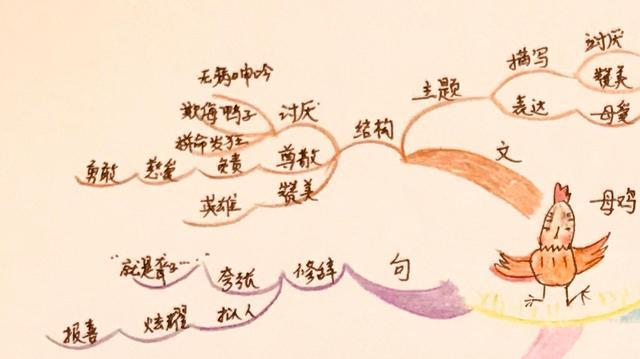 讨厌
描写
赞美
主题
无病呻吟
表达
母爱
欺侮鸭子
讨厌
结构
拼命发狂
勇敢 慈爱 负责 尊敬
文
英雄 赞美
母鸡
"就是聋子…" 夸张 修辞 句
报喜 炫耀 拟人